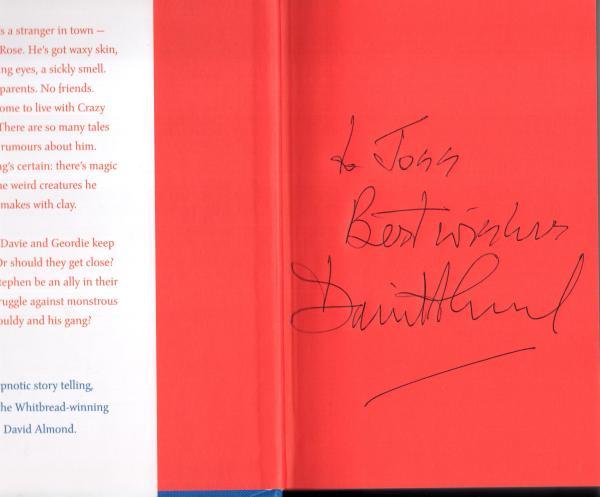 s a stranger in town –
Rose. He's got waxy skin,
ng eyes, a sickly smell.
parents. No friends.
ome to live with Crazy
There are so many tales
rumours about him.
ng's certain: there's magic
ne weird creatures he
makes with clay.
Davie and Geordie keep
Or should they get close?
tephen be an ally in their
ruggle against monstrous
ouldy and his gang?
pnotic story telling,
he Whitbread-winning
David Almond.
to
Best wishes
David Almond